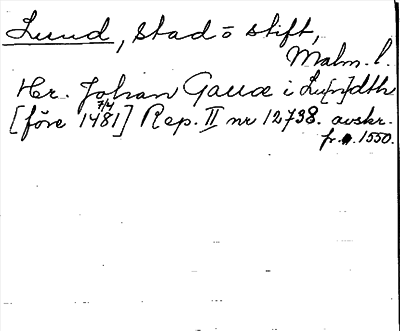 Lund, stad o stift,
Malm. l.
Her. Johan Gaua i Lu[n]dth
[före 7/4 1481] Rep. II nr 12738. avskr.
fr. 1550.